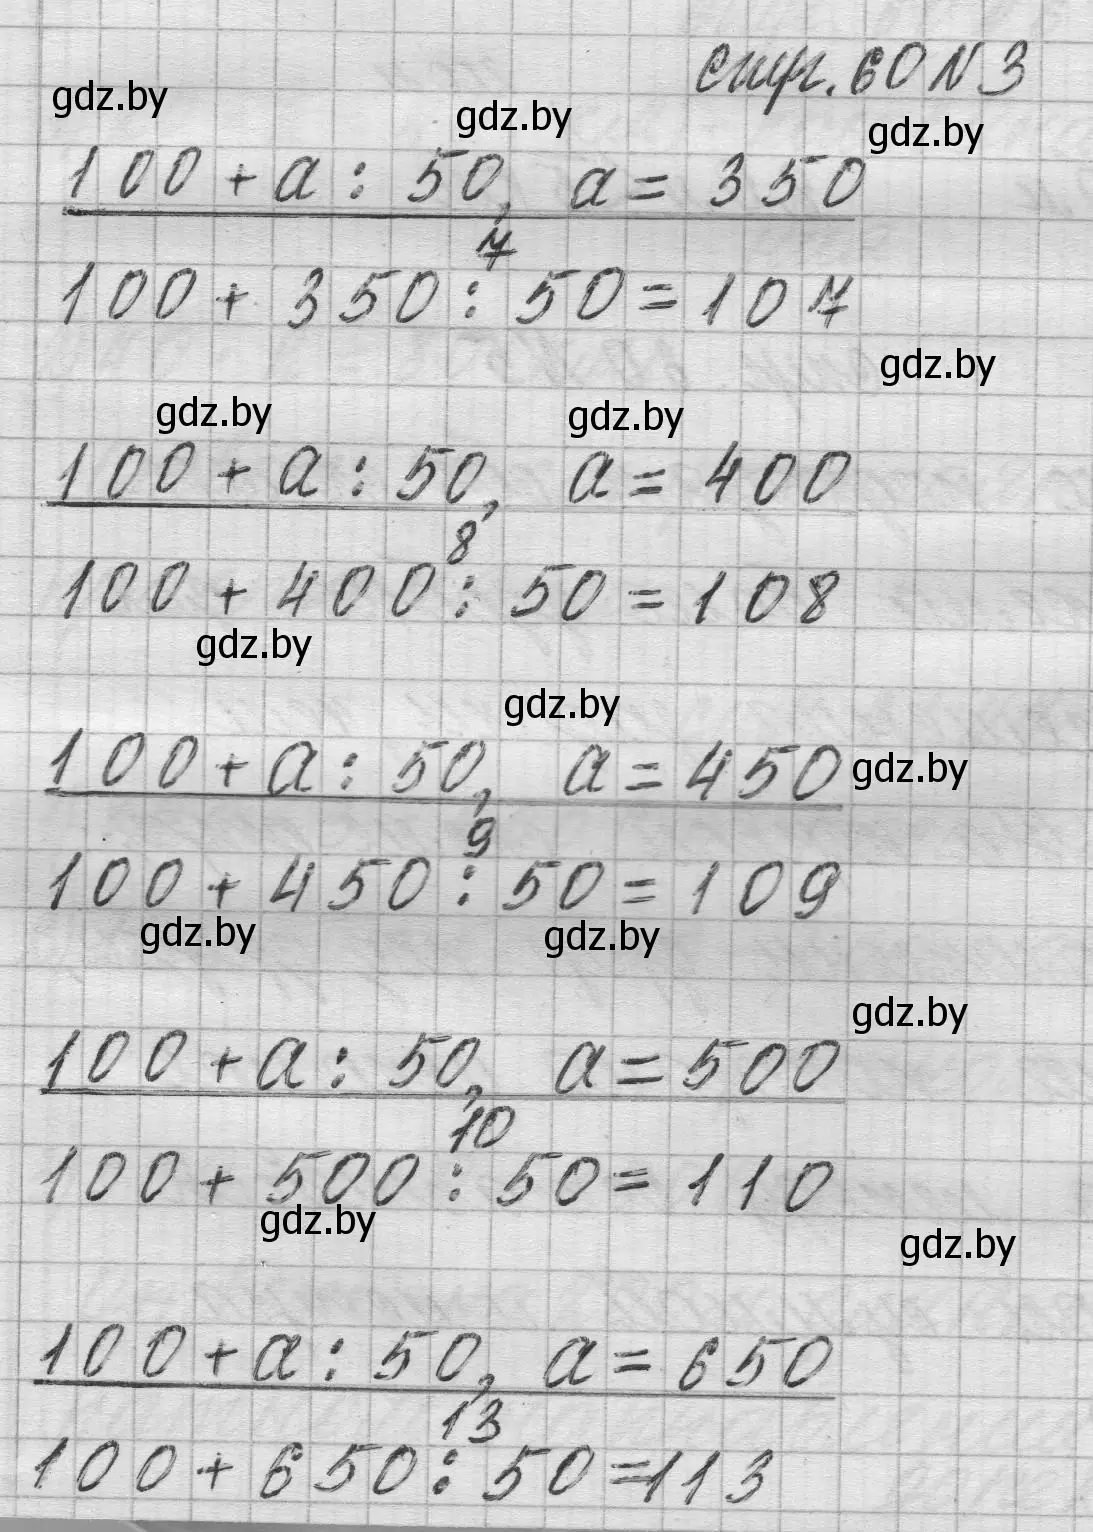 стр. 60 N 3
gdz.by
gdz.by
gdz.by
100 + a : 50, a = 350
7
100 + 350 : 50 = 107
gdz.by
gdz.by
gdz.by
100 + a : 50, a = 400
8
100 + 400 : 50 = 108
gdz.by
gdz.by
100 + a : 50, a = 450
gdz.by
9
100 + 450 : 50 = 109
gdz.by
gdz.by
gdz.by
100 + a : 50, a = 500
10
100 + 500 : 50 = 110
gdz.by
gdz.by
100 + a : 50, a = 650
13
100 + 650 : 50 = 113